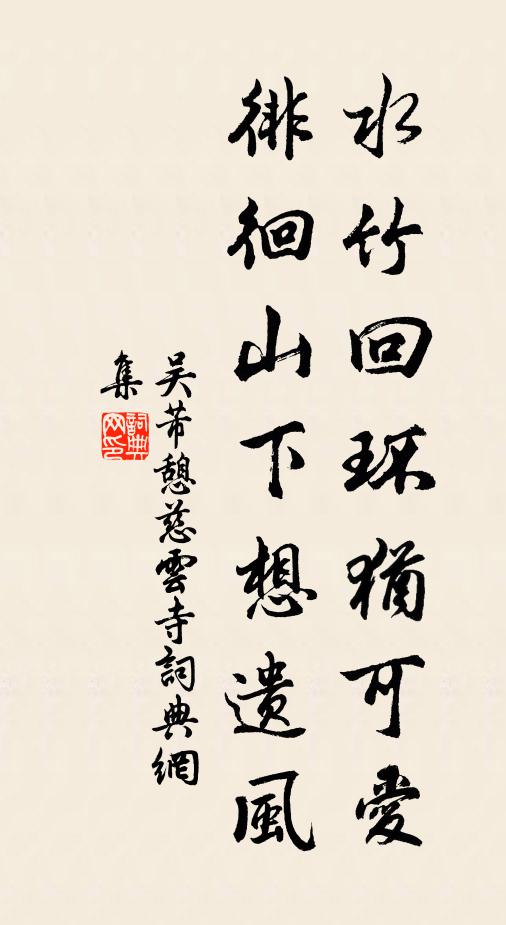 水竹回环猶可愛
徘徊山下想遺風
吴芾憩慈雲寺詞典網
集
詞典
网印